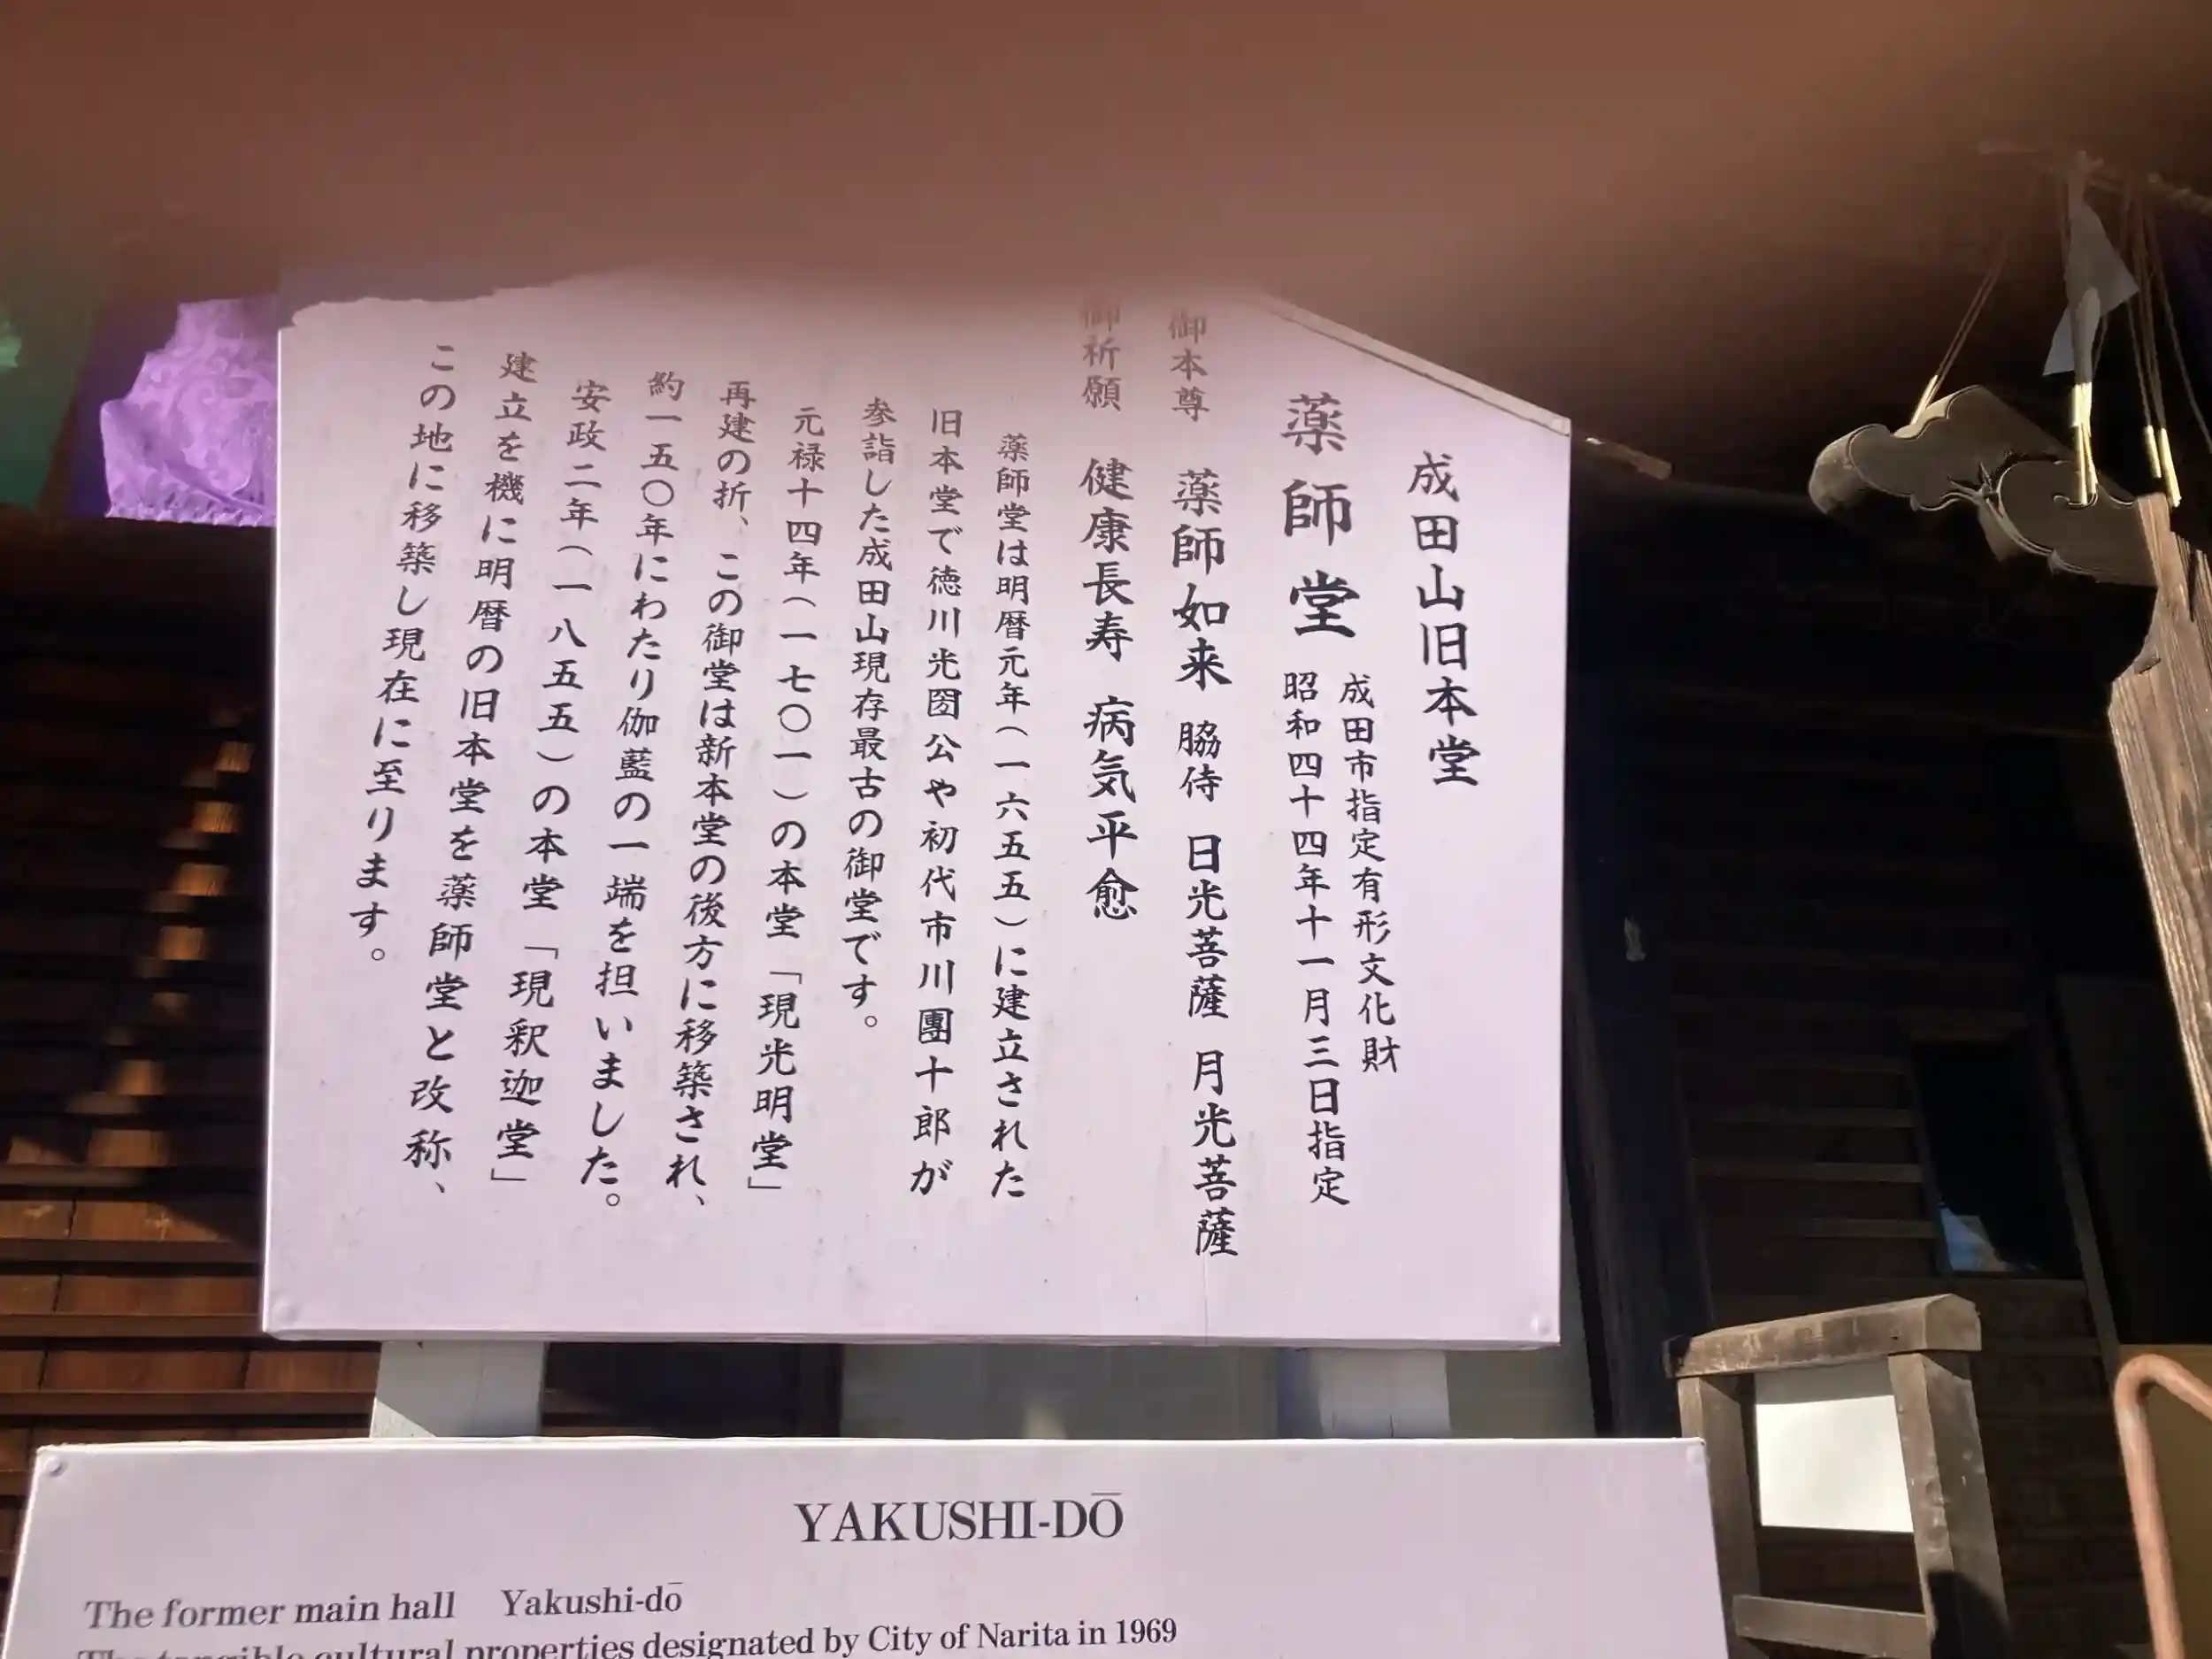 成田山旧本堂
薬師堂
成田市指定有形文化財
昭和四十四年十一月三日指定
御本尊 薬師如来 脇侍 日光菩薩 月光菩薩
御祈願 健康長寿 病気平愈
薬師堂は明暦元年(一六五五)に建立された
旧本堂で徳川光圀公や初代市川團十郎が
参詣した成田山現存最古の御堂です。
元禄十四年(一七〇一)の本堂「現光明堂」
再建の折、この御堂は新本堂の後方に移築され、
約一五〇年にわたり伽藍の一端を担いました。
安政二年(一八五五)の本堂「現釈迦堂」
建立を機に明暦の旧本堂を薬師堂と改称、
この地に移築し現在に至ります。
YAKUSHI-DŌ
The former main hall Yakushi-dō
The tangible cultural properties designated by City of Narita in 1969